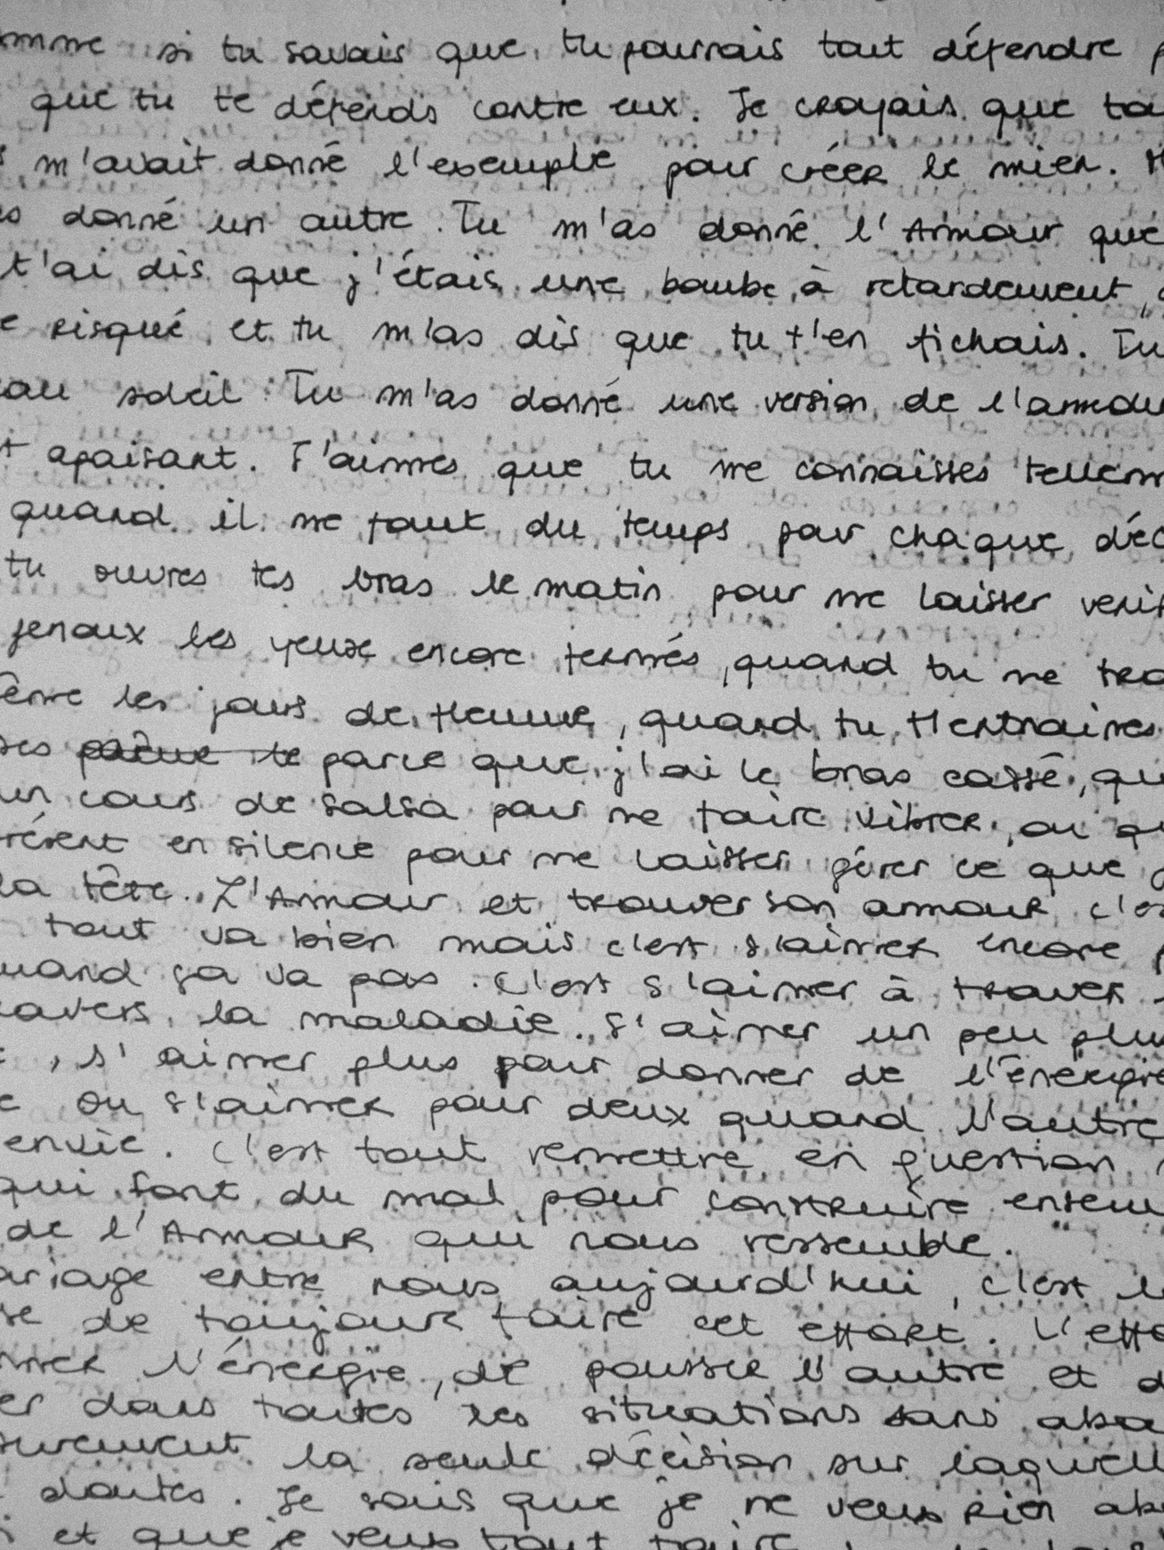 si tu savais que tu pourrais tout défendre
que tu te défends contre eux. Je croyais que
m'avait donné l'exemple pour créer le mien.
donné un autre. Tu m'as donné l'Amour que
t'ai dis que j'étais une bombe à retardement,
risqué et tu m'as dis que tu t'en fichais. Tu
soleil Tu m'as donné une version de
apaisant. J'aimes que tu me connaisses
quand il me faut du temps pour chaque
tu ouvres tes bras le matin pour me laisser
les yeux encore fermés, quand tu me
les jours de flemme, quand tu
parce que j'ai le bras cassé,
cours de salsa pour me faire vibrer, ou
en silence pour me laisser gérer ce que
la tête. L'Amour et trouver son amour
tout va bien mais c'est s'aimer encore
ça va pas. C'est s'aimer à traver
la maladie. S'aimer un peu
, s'aimer plus pour donner de
ou s'aimer pour deux quand l'autre
envie. C'est tout remettre en question
qui font du mal pour construire
de l'Amour qui nous ressemble.
entre nous aujourd'hui, c'est
de toujour faire cet effort.
l'énergie, de pousser l'autre et
dans toutes les situations sans
la seule décision sur
doutes. Je sais que je ne veux rien
et que je veux tout faire